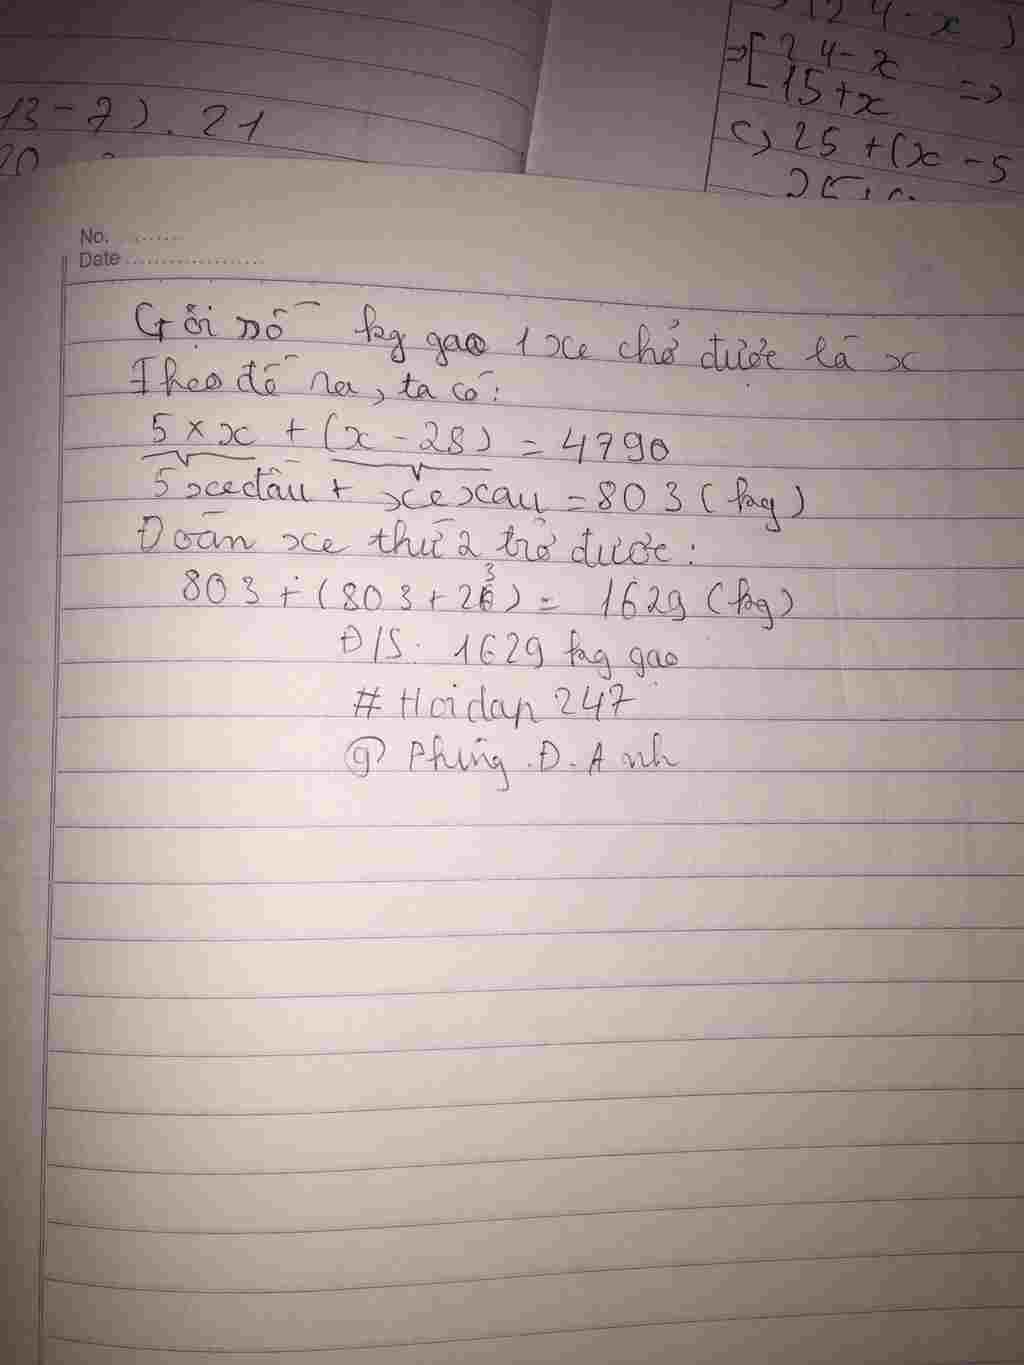 13 - 7). 21
20
(24 - x)
=> [24 - x =>
15 + x
c) 25 + (x - 5
No. ......
Date ....................
Gọi số kg gạo 1 xe chở được là x
Theo đề ra, ta có:
5 × x + (x - 28) = 4790
5 xe đầu + xe xau = 803 (kg)
Đoàn xe thứ 2 trở được:
803 + (803 + 23) = 1629 (kg)
Đ/S: 1629 kg gạo
# Hoidap 247
@ Phùng .Đ. Anh